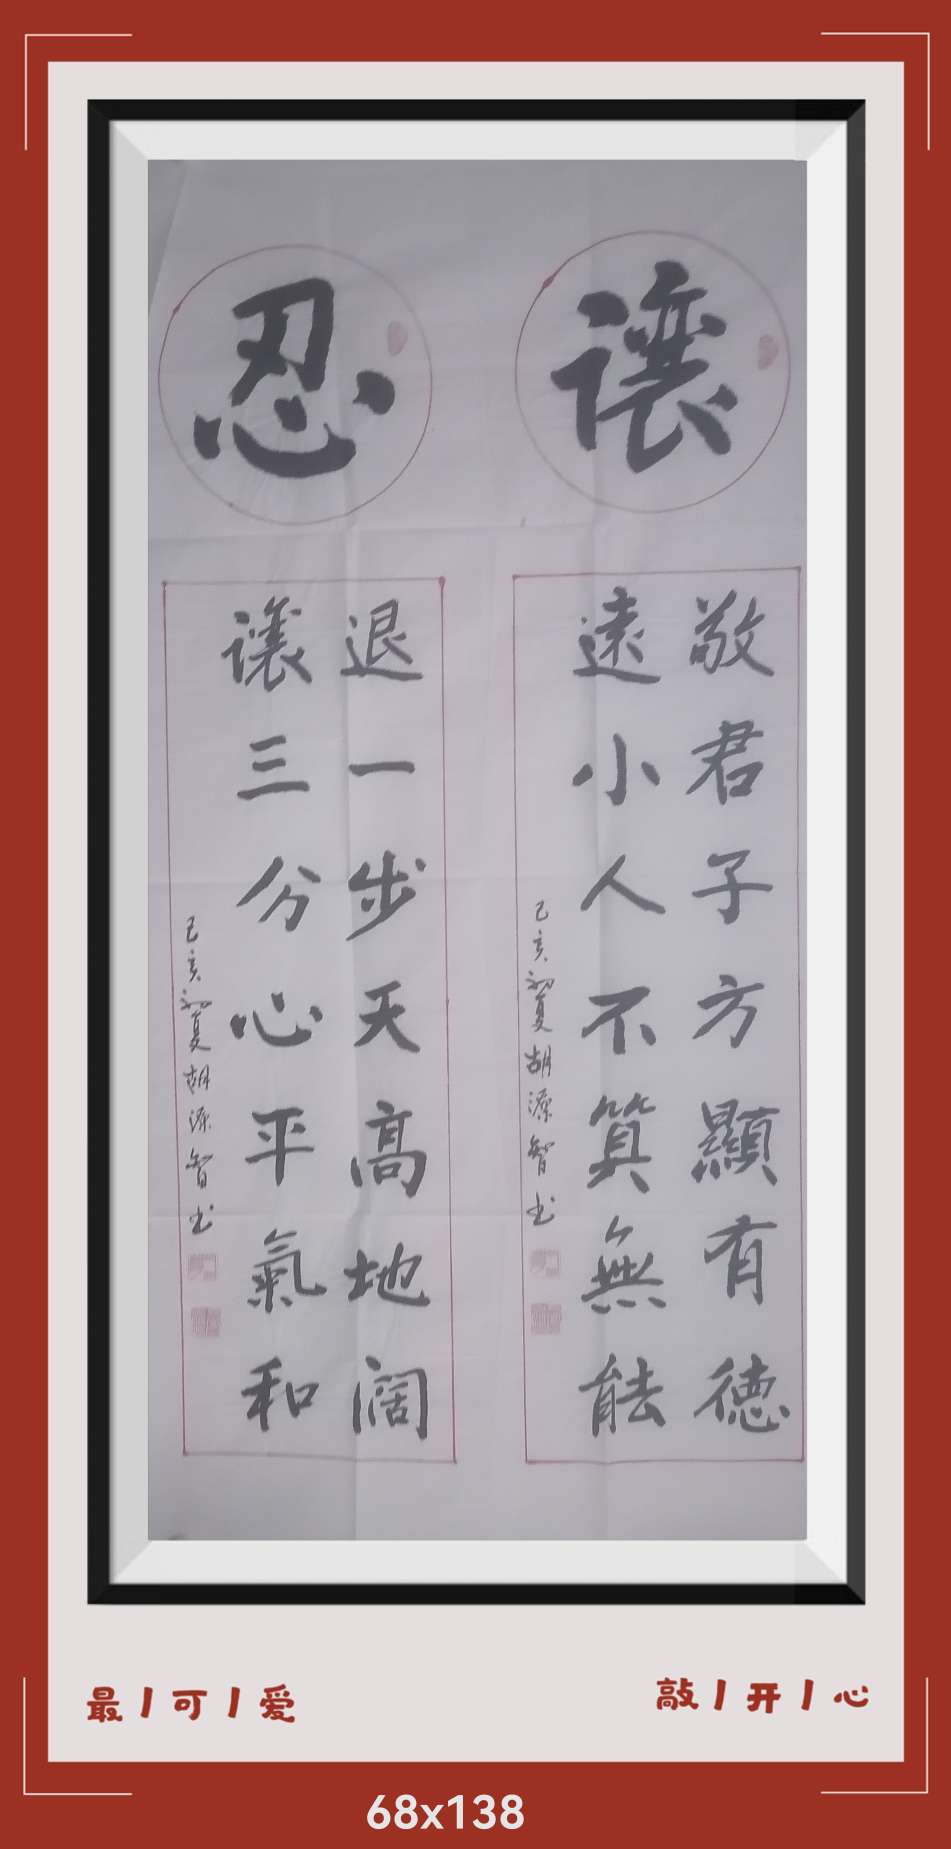 讓
敬君子方顯有德
遠小人不算無能
己亥初夏胡源智书
忍
退一步天高地阔
讓三分心平氣和
己亥初夏胡源智书
最丨可丨爱
敲丨开丨心
68x138